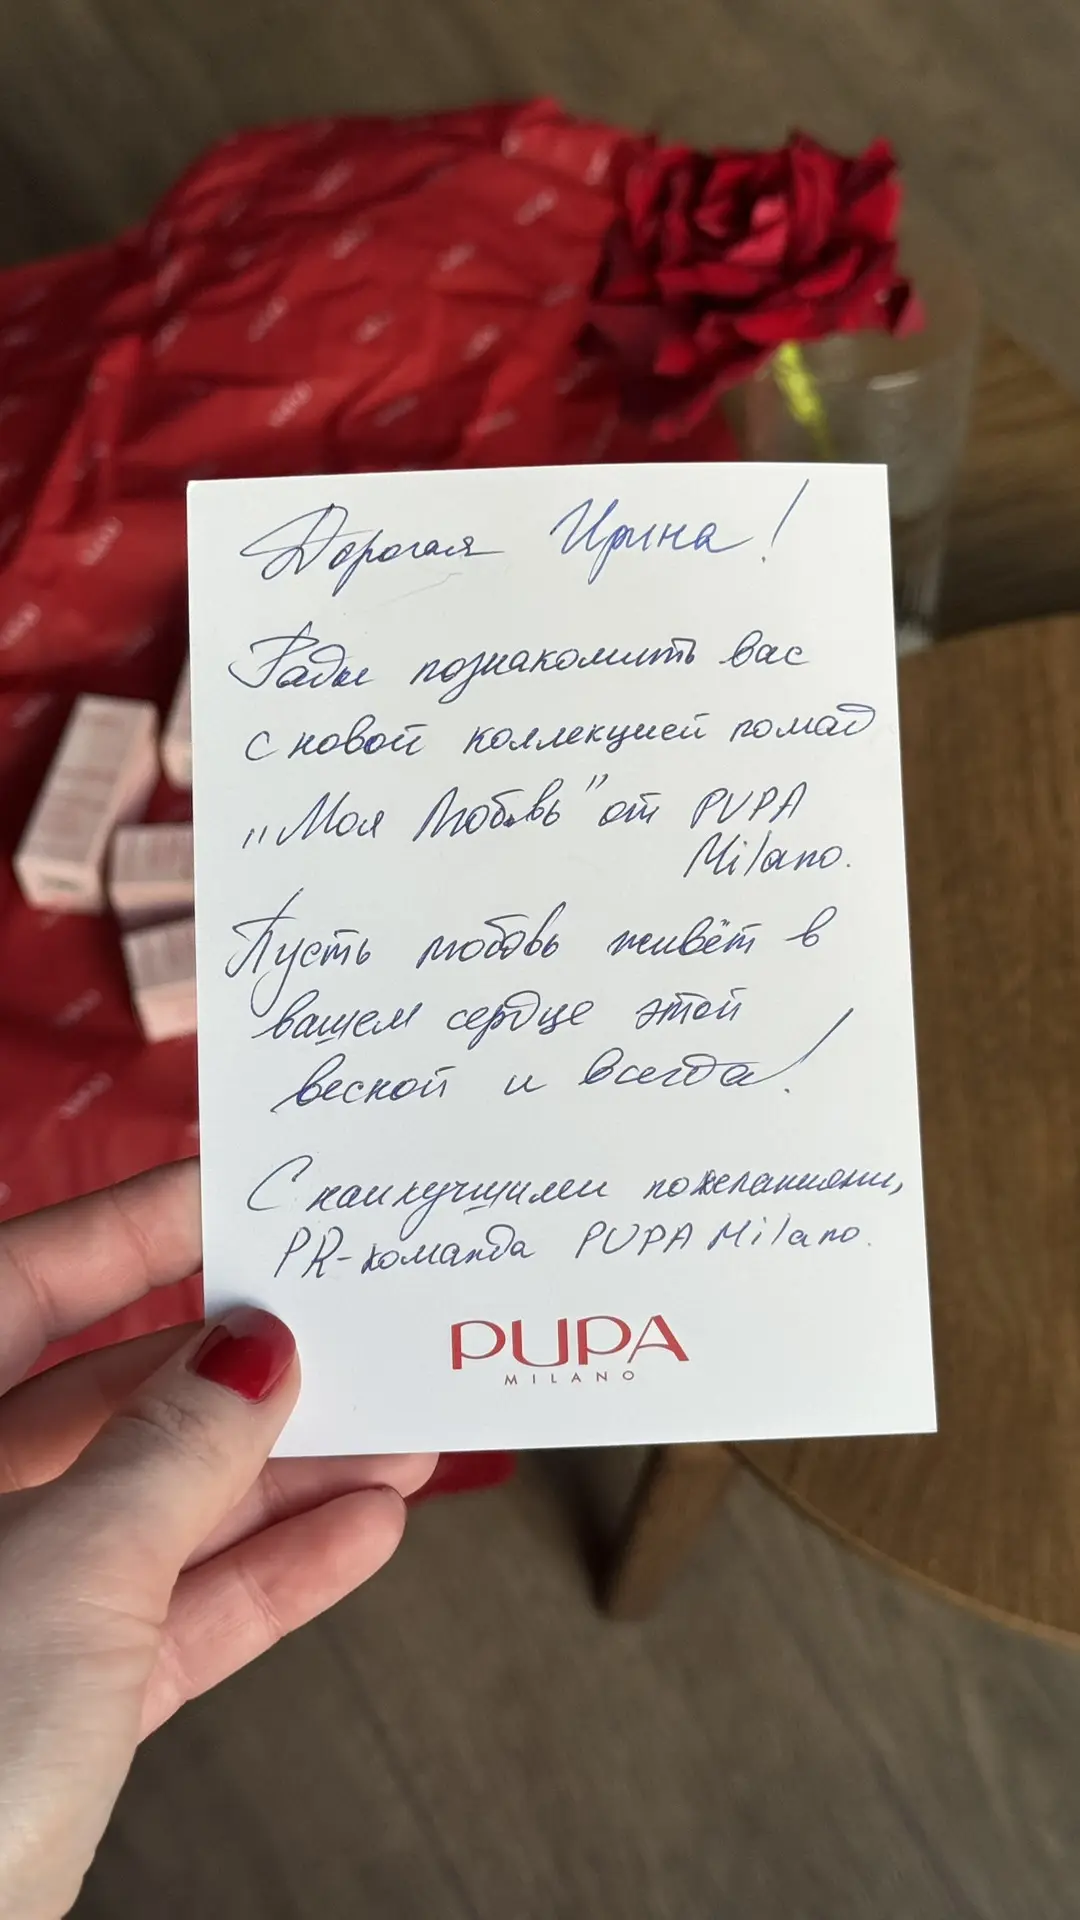 Дорогая Ирина!
Рады познакомить вас
с новой коллекцией помад
„Моя Любовь" от PUPA
Milano.
Пусть любовь живёт в
вашем сердце этой
весной и всегда!
С наилучшими пожеланиями,
PR-команда PUPA Milano.
PUPA
MILANO